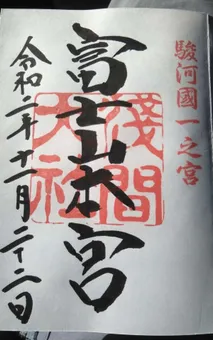 駿河國一之宮
富士山本宮
淺間大社
令和二年十一月二十二日